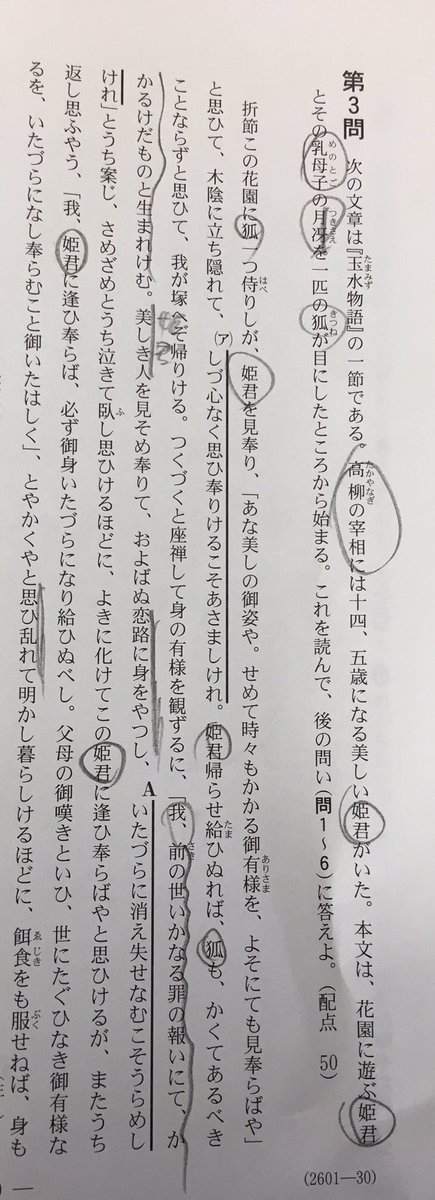 第3問　次の文章は『玉水物語』の一節である。高柳の宰相には十四、五歳になる美しい姫君がいた。本文は、花園に遊ぶ姫君
とその乳母子の月冴を一匹の狐が目にしたところから始まる。これを読んで、後の問い(問1～6)に答えよ。(配点　50)
折節この花園に狐一つ侍りしが、姫君を見奉り、「あな美しの御姿や。せめて時々もかかる御有様を、よそにても見奉らばや」
と思ひて、木陰に立ち隠れて、(ア)しづ心なく思ひ奉りけるこそあさましけれ。姫君帰らせ給ひぬれば、狐も、かくてあるべき
ことならずと思ひて、我が塚へぞ帰りける。つくづくと座禅して身の有様を観ずるに、「我、前の世いかなる罪の報いにて、か
かるけだものと生まれけむ。美しき人を見そめ奉りて、およばぬ恋路に身をやつし、Aいたづらに消え失せなむこそうらめし
けれ」とうち案じ、さめざめとうち泣きて臥し思ひけるほどに、よきに化けてこの姫君に逢ひ奉らばやと思ひけるが、またうち
返し思ふやう、「我、姫君に逢ひ奉らば、必ず御身いたづらになり給ひぬべし。父母の御嘆きといひ、世にたぐひなき御有様な
るを、いたづらになし奉らむこと御いたはしく」、とやかくやと思ひ乱れて明かし暮らしけるほどに、餌食をも服せねば、身も
(2601―30)